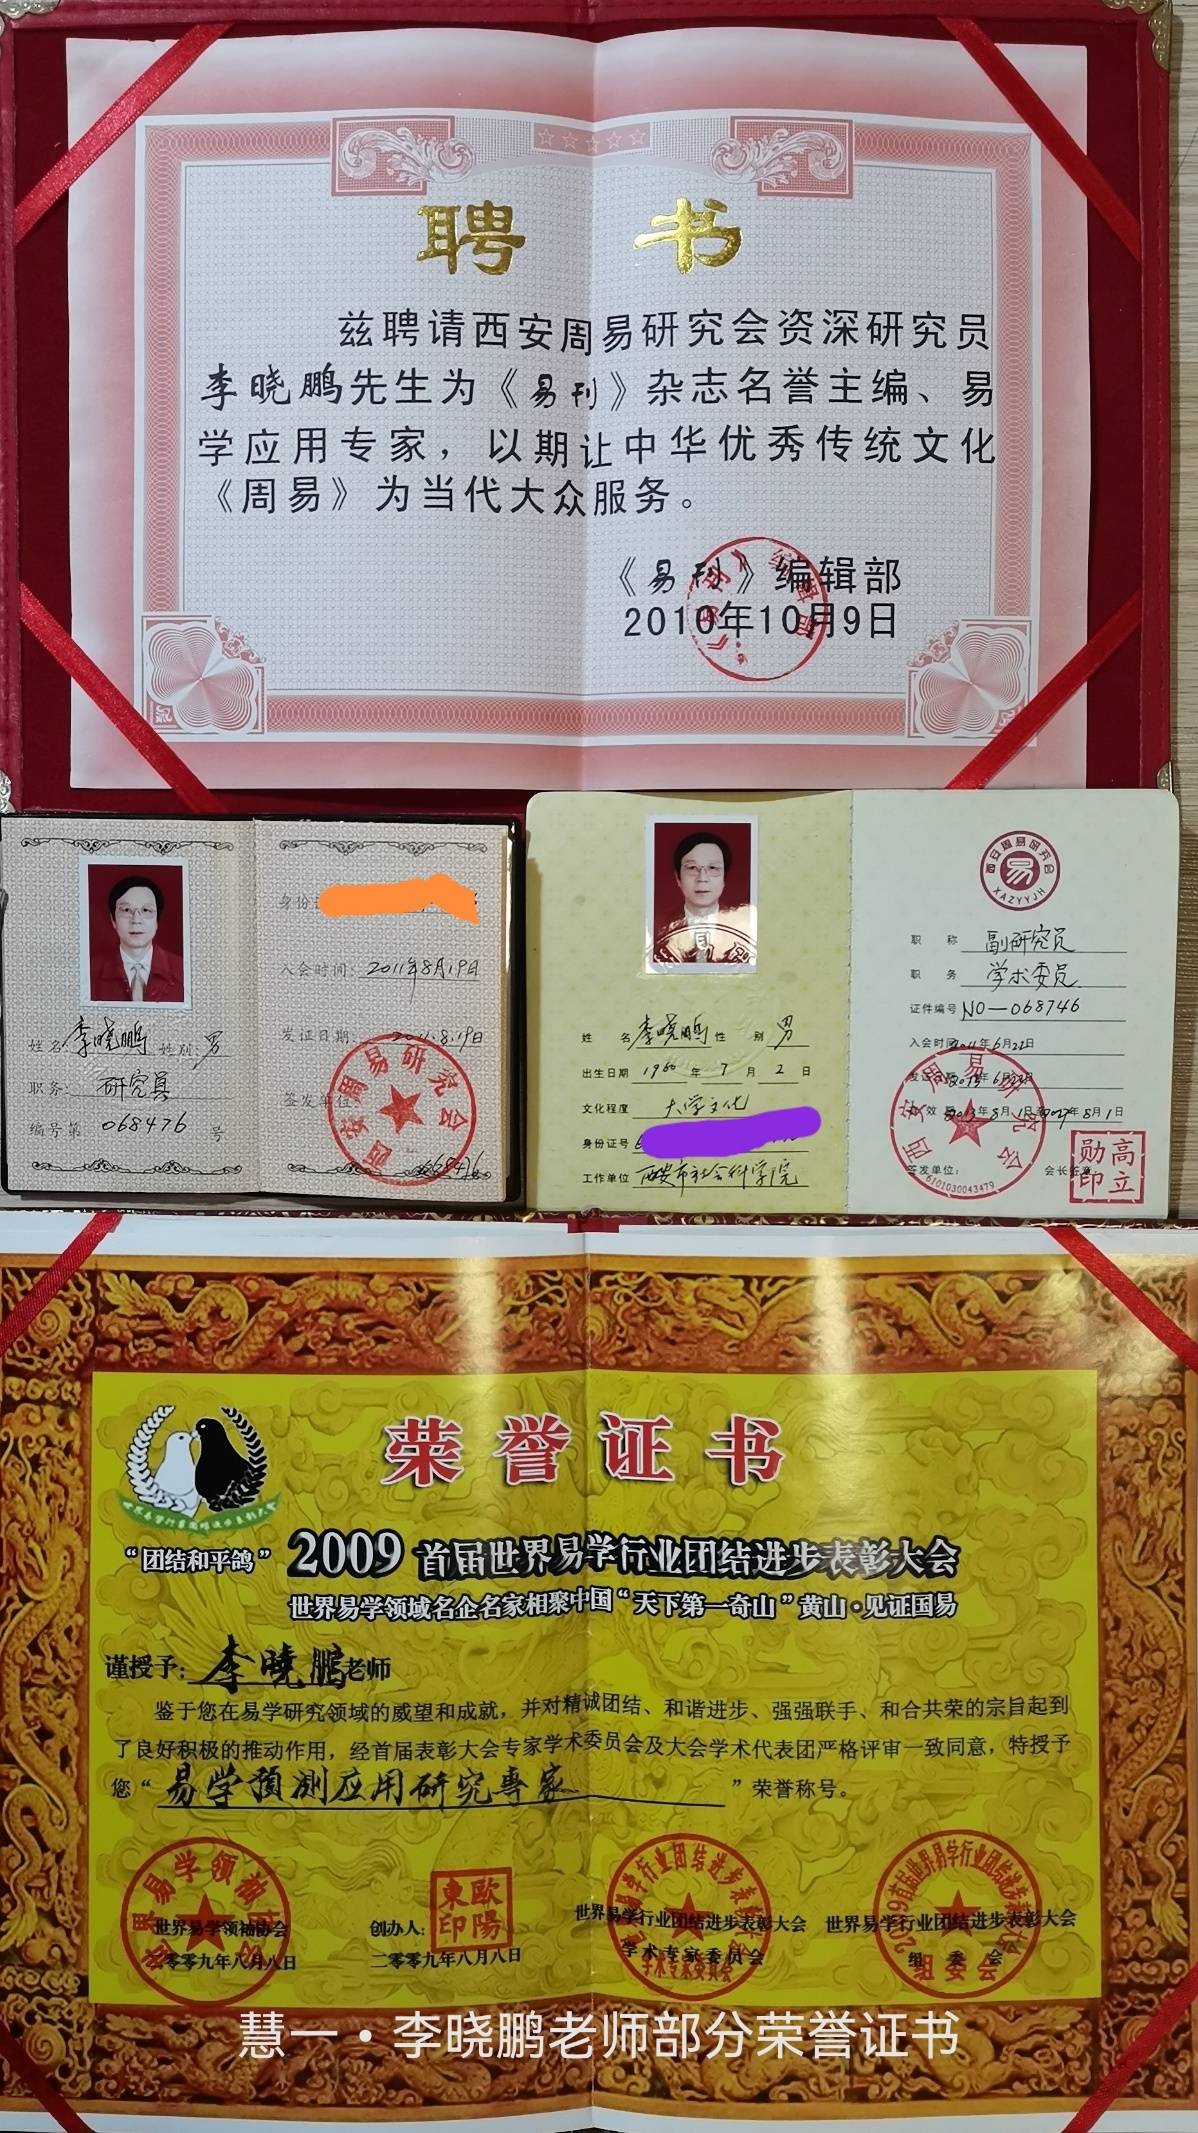 聘书
兹聘请西安周易研究会资深研究员
李晓鹏先生为《易刊》杂志名誉主编、易
学应用专家，以期让中华优秀传统文化
《周易》为当代大众服务。
《易刊》编辑部
2010年10月9日
姓名：李晓鹏 姓别：男
职务：研究员
编号第 068476 号
身份证
入会时间：2011年8月19日
发证日期：2011.8.19日
签发单位：
西安周易研究会
068476
姓名 李晓鹏 性别 男
出生日期 1960 年 7 月 2 日
文化程度 大学文化
身份证号
工作单位 西安市社会科学院
西安周易研究会
易
XAZYYJH
职称 副研究员
职务 学术委员
证件编号 NO—068746
入会时间 2011年6月22日
西安周易研究会
签发单位：
会长签章：
6101030043479
高立勋印
荣誉证书
“团结和平鸽”
2009首届世界易学行业团结进步表彰大会
世界易学领域名企名家相聚中国“天下第一奇山”黄山·见证国易
谨授予：李晓鹏老师
鉴于您在易学研究领域的威望和成就，并对精诚团结、和谐进步、强强联手、和合共荣的宗旨起到
了良好积极的推动作用，经首届表彰大会专家学术委员会及大会学术代表团严格评审一致同意，特授予
您“易学預测应用研究專家”荣誉称号。
世界易学领袖协会
二零零九年八月八日
创办人：
東歐印陽
二零零九年八月八日
世界易学行业团结进步表彰大会
学术专家委员会
世界易学行业团结进步表彰大会
组委会
慧一·李晓鹏老师部分荣誉证书